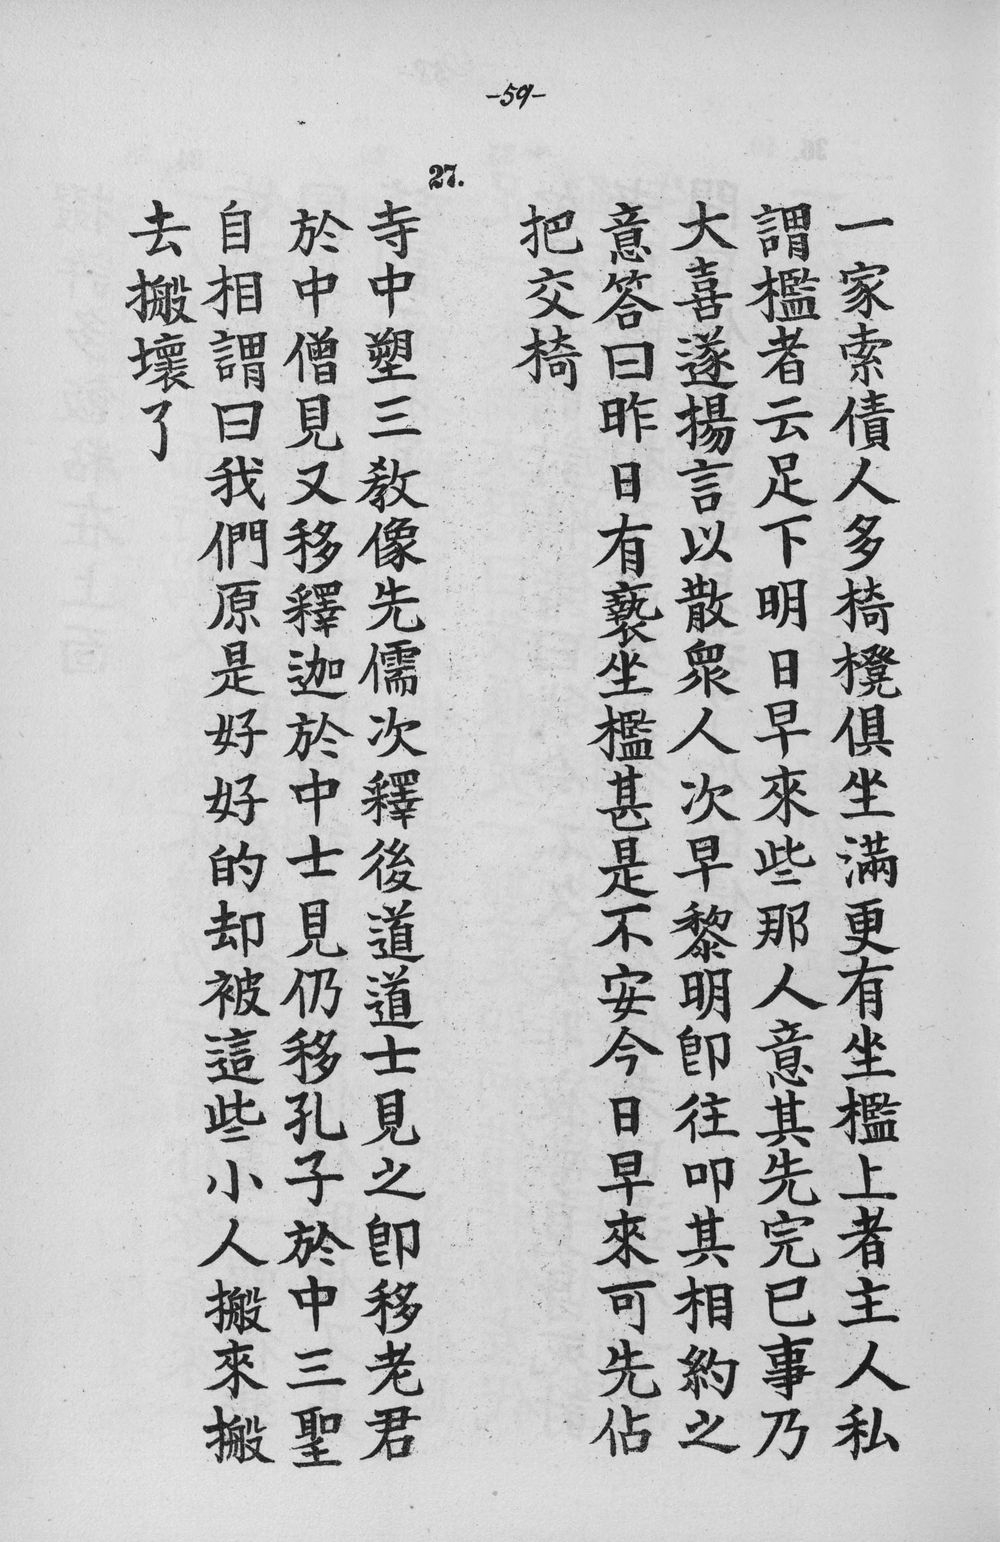 -59-
一家索債人多椅櫈俱坐滿更有坐檻上者主人私
謂檻者云足下明日早來些那人意其先完已事乃
大喜遂揚言以散衆人次早黎明卽往叩其相約之
意答曰昨日有褻坐檻甚是不安今日早來可先佔
把交椅
27.
寺中塑三敎像先儒次釋後道道士見之卽移老君
於中僧見又移釋迦於中士見仍移孔子於中三聖
自相謂曰我們原是好好的却被這些小人搬來搬
去搬壞了